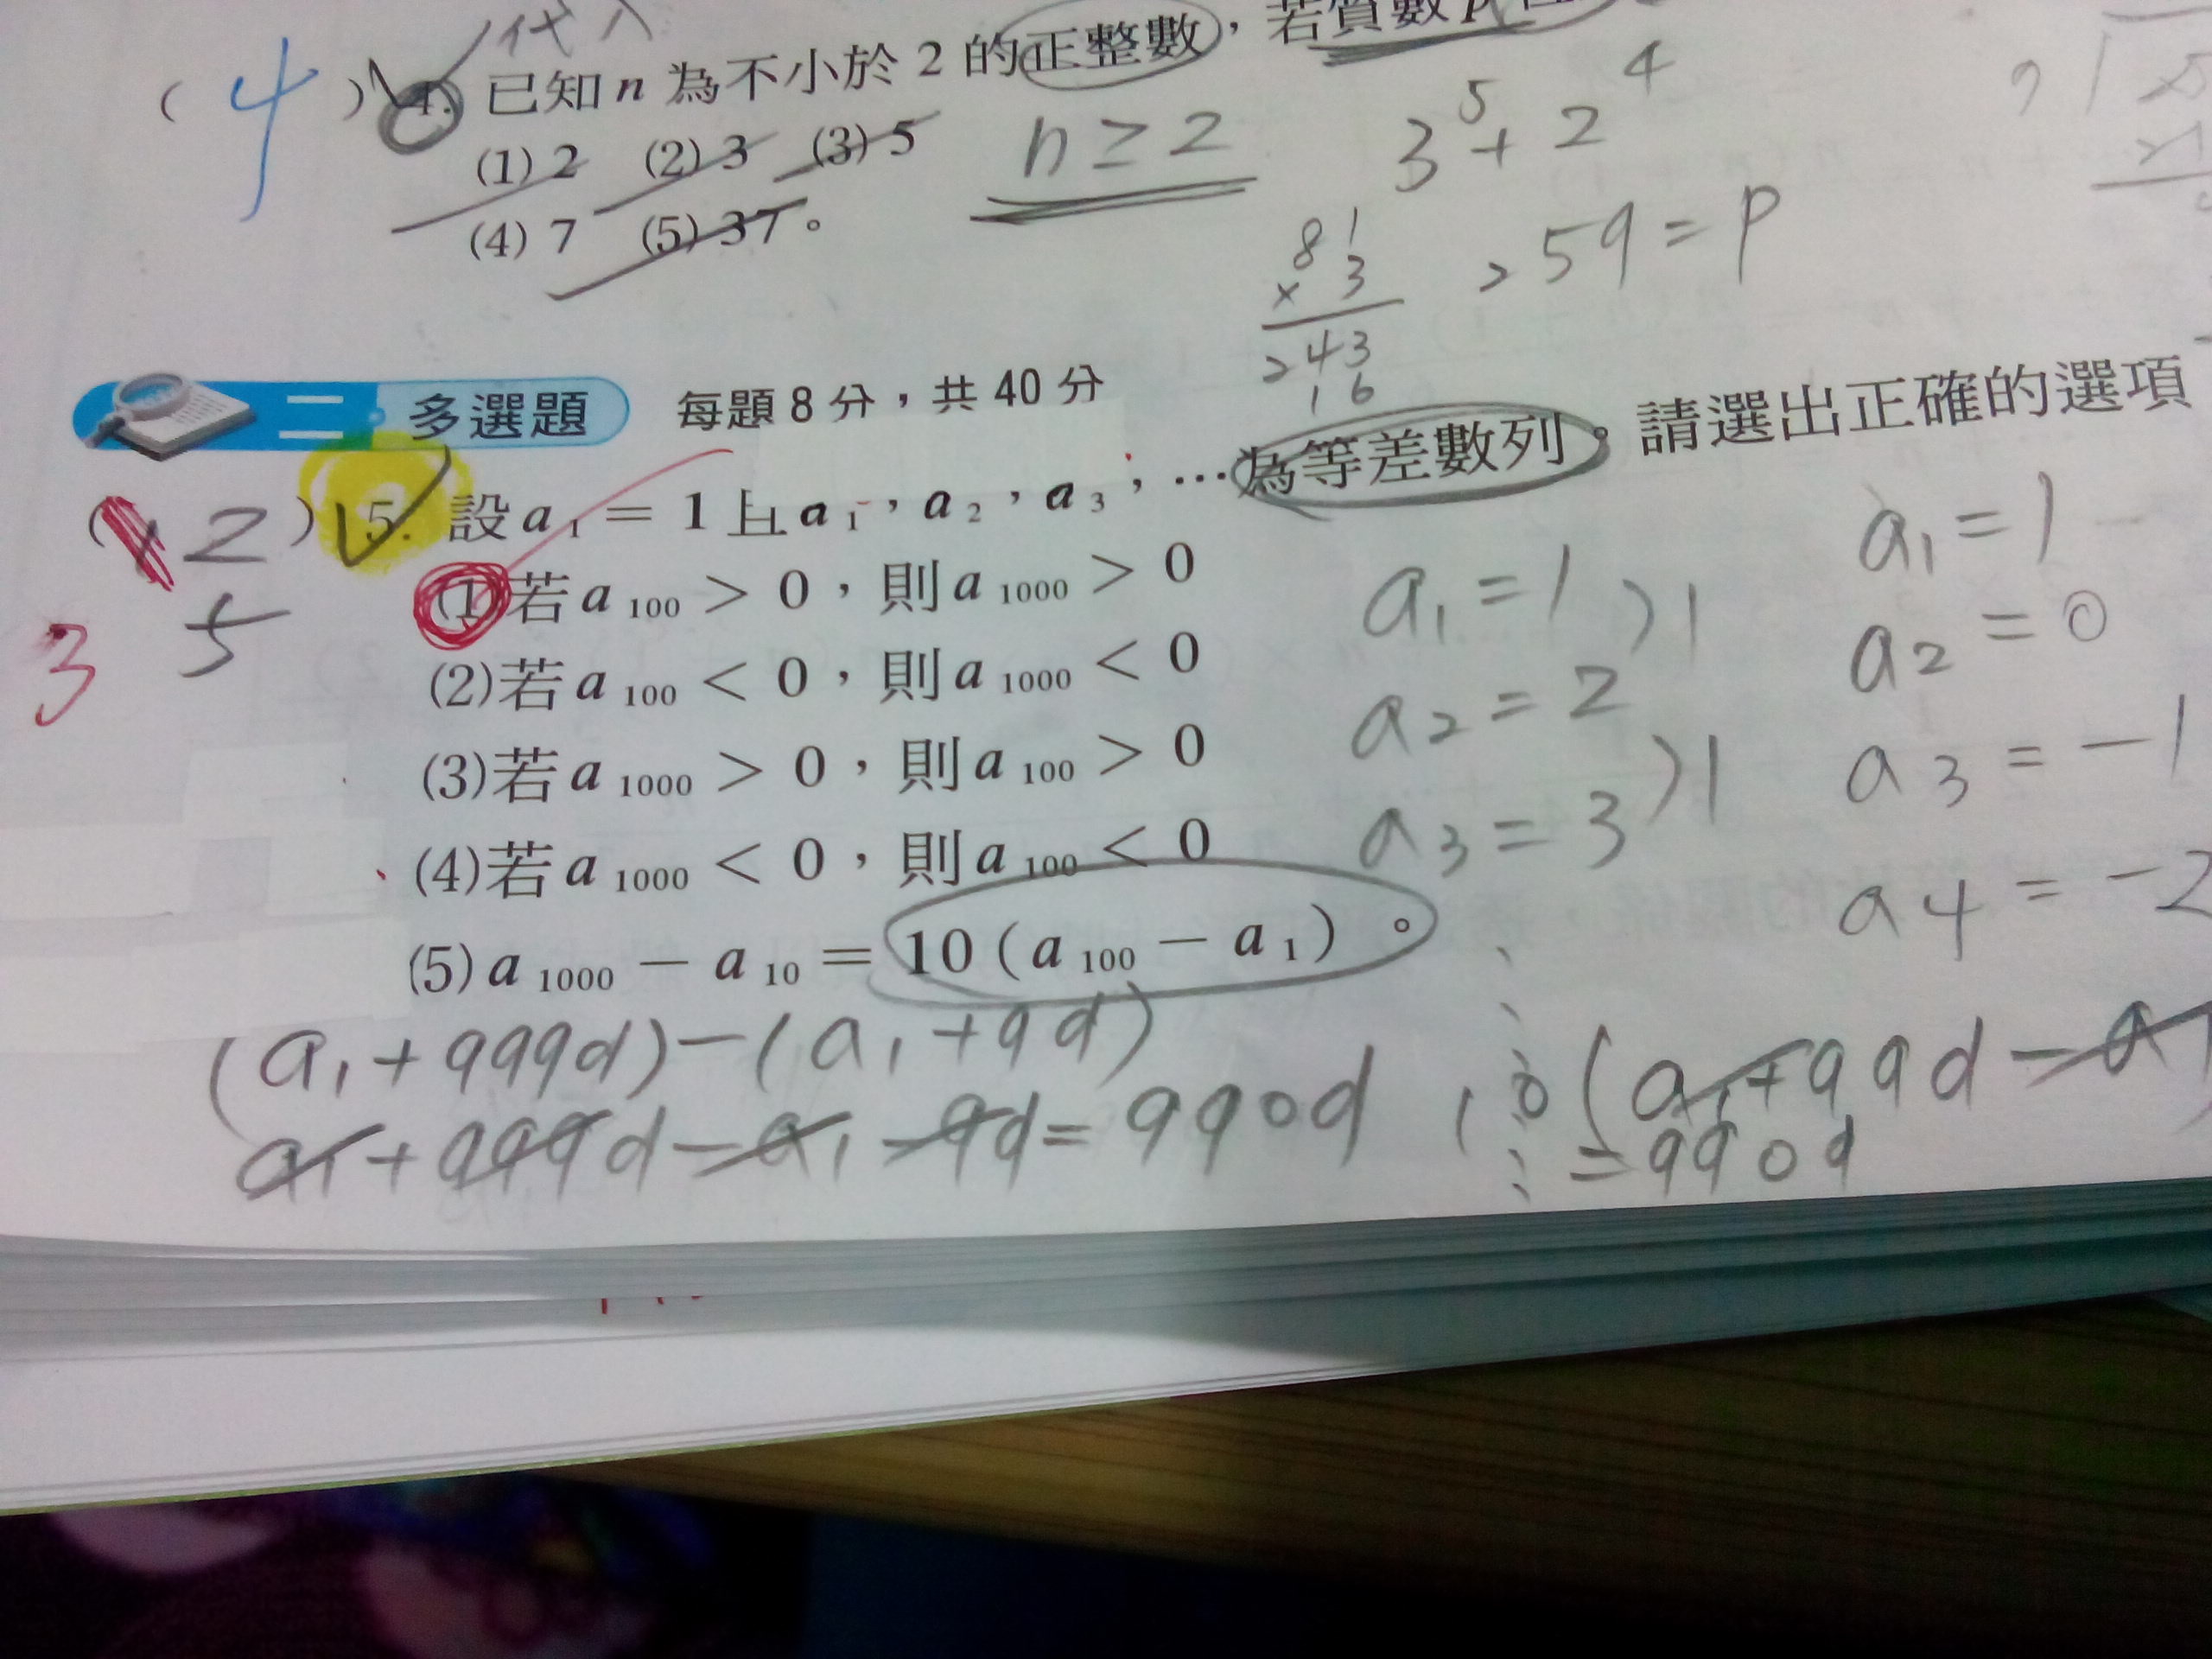 代入
( 4 ) 4. 已知 n 為不小於 2 的正整數，若質數 p
(1) 2 (2) 3 (3) 5
(4) 7 (5) 37。
n ≥ 2
3⁵ + 2⁴
81
× 3
243
16
259 = p
二 多選題 每題 8 分，共 40 分
( 1 2 ) 5. 設 a₁ = 1 且 a₁，a₂，a₃，…為等差數列。請選出正確的選項
5
3
(1)若 a₁₀₀ > 0，則 a₁₀₀₀ > 0
(2)若 a₁₀₀ < 0，則 a₁₀₀₀ < 0
(3)若 a₁₀₀₀ > 0，則 a₁₀₀ > 0
(4)若 a₁₀₀₀ < 0，則 a₁₀₀ < 0
(5) a₁₀₀₀ − a₁₀ = 10 ( a₁₀₀ − a₁ )。
a₁ = 1 >1
a₂ = 2
a₃ = 3 >1
a₁ = 1
a₂ = 0
a₃ = −1
a₄ = −2
(a₁ + 999d) − (a₁ + 9d)
a₁ + 999d − a₁ − 9d = 990d
10 (a₁ + 99d − a₁)
= 990d